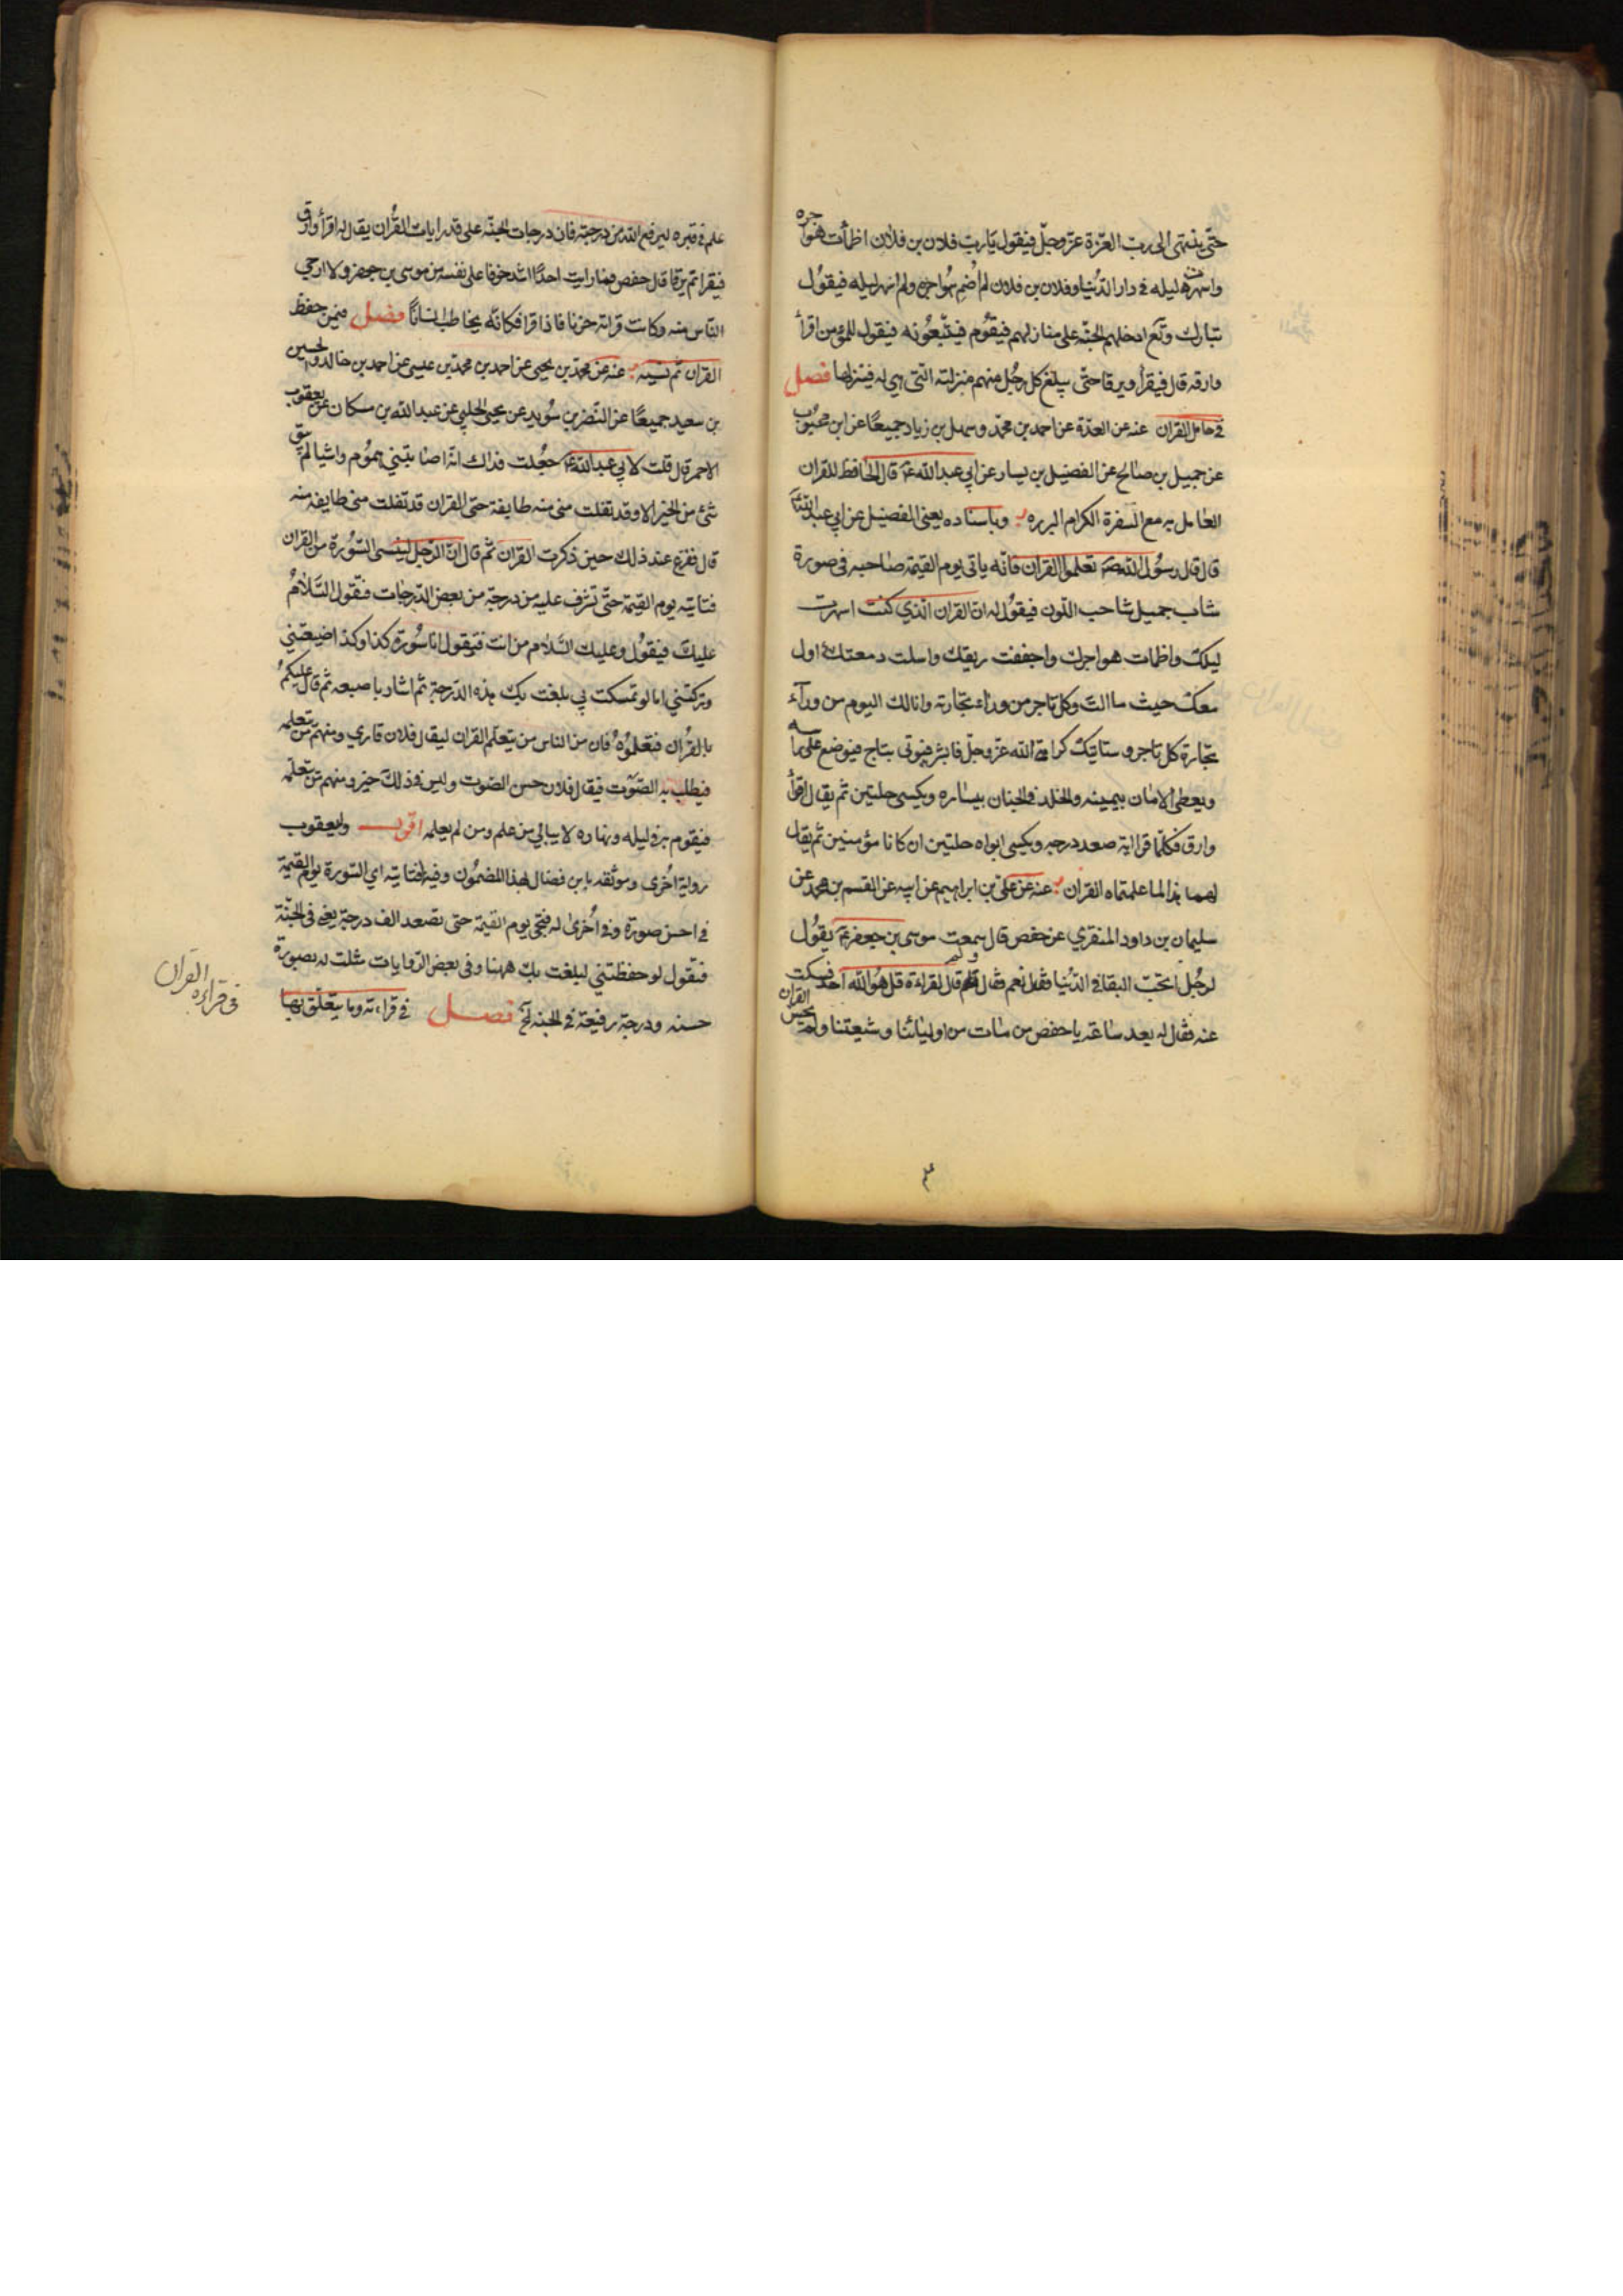 حتّى ينتهى الى ربّ العزّة عزّ وجلّ فيقول يا ربّ فلان بن فلان اظمأت هواجره
واسهرت ليله فى دار الدّنيا وفلان بن فلان لم اُضم هواجره ولم اُسهر ليله فيقول
تبارك وتع ادخلهم الجنّة على منازلهم فيقوم فيتّبعونه فيقول للمؤمن اقرأ
وارقه قال فيقرأ ويرقا حتّى يبلغ كل رجل منهم منزلته الّتى هى له فينزلها فصل
فى حامل القران عنه عن العدّة عن احمد بن محمّد وسهل بن زياد جميعًا عن ابن محبوب
عن جميل بن صالح عن الفضيل بن يسار عن ابي عبد الله ع قال الحافظ للقران
العامل به مع السفرة الكرام البرره وباسناده يعنى الفضيل عن ابي عبد الله ع
قال قال رسول الله ص تعلموا القران فانّه ياتى يوم القيمة صاحبه فى صورة
شاب جميل شاحب اللّون فيقول له انا القران الّذي كنت اسهرت
ليلك واظمات هواجرك واجففت ريقك واسلت دمعتك اول
معك حيث ما الت وكل تاجر من وراء تجارته وانا لك اليوم من ورآء
تجارة كل تاجر وستاتيك كرامة الله عزّ وجلّ فابشر فيوتى بتاج فيوضع على راسه
ويعطى الامان بيمينه والخلد فى الجنان بيساره ويكسى حلتين ثم يقال اقرأ
وارق فكلّما قرا اية صعد درجه ويكسى ابواه حلتين ان كانا مؤمنين ثم يقال
لهما هذا لما علمتماه القران عنه عن على بن ابراهيم عن ابيه عن القسم بن محمد عن
سليمان بن داود المنقري عن حفص قال سمعت موسى بن جعفر ع يقول
لرجُل اتحبّ البقا فى الدّنيا فقال نعم فقال ولم قال لقراءة قل هو الله احد فسكت
عنه فقال له بعد ساعة يا حفص من مات من اوليائنا وشيعتنا ولم يحسن القران
علم فى قبره ليرفع الله من درجته فان درجات الجنّة على قدر ايات القُران يقال له اقرأ وارق
فيقرا ثم يرقا قال حفص فما رايت احدًا اشد خوفا على نفسه من موسى بن جعفر ولا ارجى
النّاس منه وكانت قرائته حزنا فاذا قرا فكانّه يخاطب انسانًا فصل فيمن حفظ
القران ثم نسيه عنه عن محمّد بن يحيى عن احمد بن محمّد بن عيسى عن احمد بن خالد والحسين
بن سعيد جميعًا عن النّضر بن سُويد عن يحيى الحلبي عن عبد الله بن مسكان عن يعقوب
الاحمر قال قلت لابي عبد الله ع جعلت فداك انّه اصابتني هموم واشيا لم يبق
شئ من الخير الا وقد تفلت منى منه طايفة حتى القران قد تفلت منى طايفه منه
قال ففزع عند ذلك حين ذكرت القران ثم قال انّ الرّجل لينسى السّورة من القران
فتاتيه يوم القيمة حتّى تشرف عليه من درجة من بعض الدّرجات فتقول السّلام
عليك فيقول وعليك السّلام من انت فتقول انا سُورة كذا وكذا ضيعتني
وتركتني اما لو تمسكت بي بلغت بك هذه الدّرجة ثم اشار باصبعه ثم قال عليكم
بالقرُان فتعلموُهُ فان من الناس من يتعلم القران ليقال فلان قاري ومنهم من يتعلمه
فيطلب به الصّوت فيقال فلان حسن الصّوت وليس فى ذلك خير ومنهم من يتعلّمه
فيقوم به فى ليله ونهاره لا يبالي من علم ومن لم يعلمه اقول وليعقوب
رواية اُخرى وموثقه بابن فضال لهذا المضمُون وفيها فتاتيه اي السّورة يوم القيمة
فى احسن صورة وفى اُخرى له فتجى يوم القيمة حتى تصعد الف درجة يعنى فى الجنّة
فتقول لو حفظتني لبلغت بك ههنا وفى بعض الرّوايات مثلت له بصورة
حسنه ودرجة رفيعة فى الجنه الخ فصل فى قراءته وما يتعلّق بها
فى قراءة القران